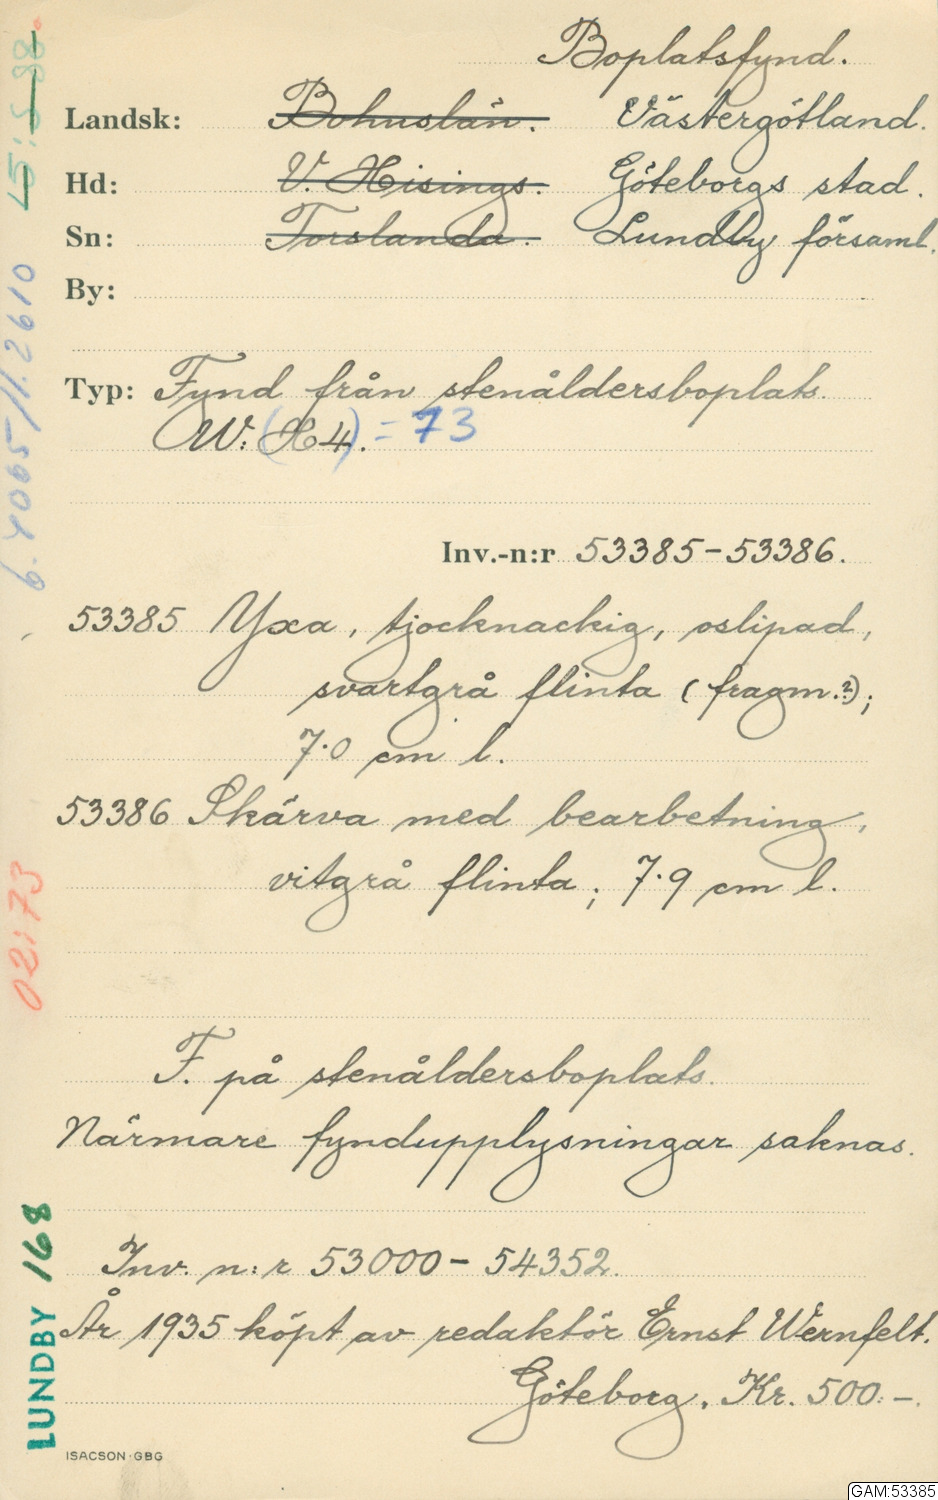 Boplatsfynd.
Landsk: Bohuslän. Västergötland.
Hd: V. Hisings. Göteborgs stad.
Sn: Torslanda. Lundby församl.
By:
Typ: Fynd från stenåldersboplats.
W: (H4). = 73
Inv.-n:r 53385-53386.
53385 Yxa, tjocknackig, oslipad,
svartgrå flinta (fragm.?);
7.0 cm l.
53386 Skärva med bearbetning,
vitgrå flinta; 7.9 cm l.
F. på stenåldersboplats.
Närmare fyndupplysningar saknas.
Inv. n:r 53000-54352.
År 1935 köpt av redaktör Ernst Wernfelt.
Göteborg. Kr. 500:-.
ISACSON·GBG
LUNDBY 168
02:73
GAM:53385